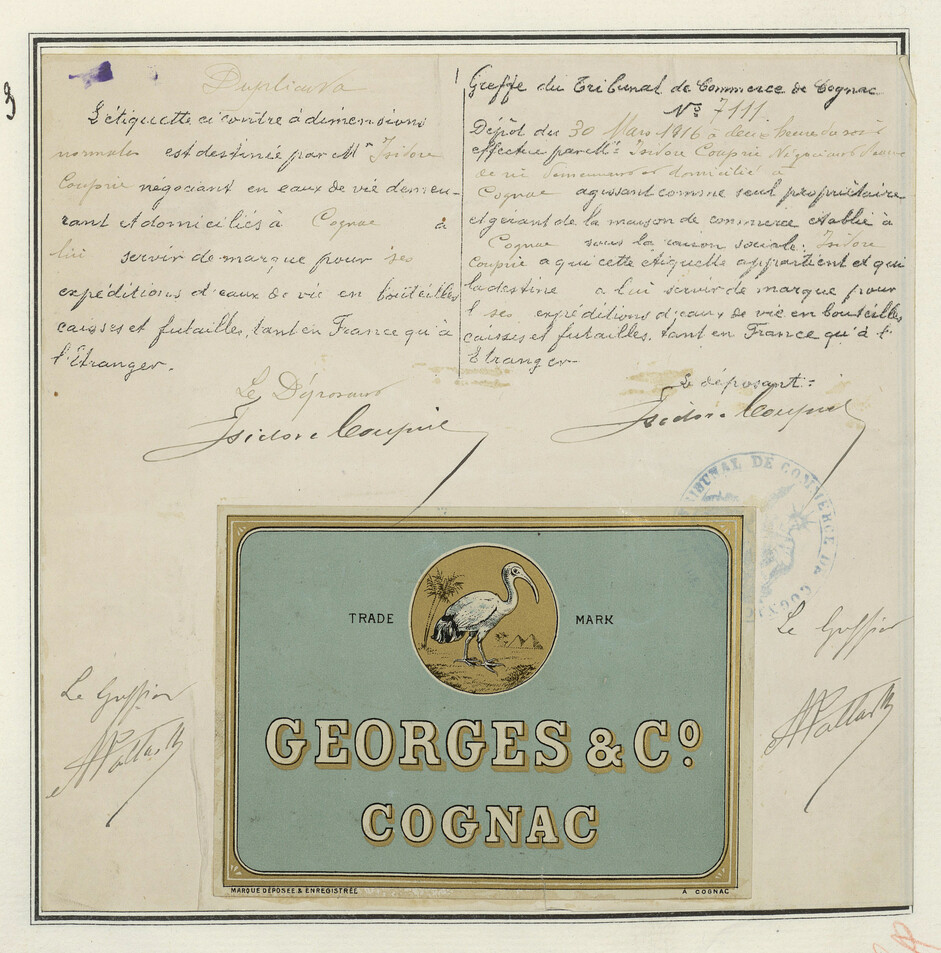 Duplicata
L'étiquette ci contre à dimensions
normales est destinée par Mr Isidore
Couprie négociant en eaux de vie demeu-
rant et domiciliés à Cognac à
lui servir de marque pour ses
expéditions d'eaux de vie en bouteilles
caisses et futailles, tant en France qu'à
l'Etranger.
Le Déposant
Isidore Couprie
Greffe du Tribunal de Commerce de Cognac
No 7111.
Dépôt du 30 Mars 1916 à deux heures du soir
effectué par Mr: Isidore Couprie Négociant d'eaux
de vie demeurant et domicilié à
Cognac agissant comme seul propriétaire
et gérant de la maison de commerce établie à
Cognac sous la raison sociale: Isidore
Couprie a qui cette étiquette appartient et qui
la destine a lui servir de marque pour
ses expéditions d'eaux de vie en bouteilles
caisses et futailles, tant en France qu'à l'
Etranger-
Le déposant:
Isidore Couprie
TRIBUNAL DE COMMERCE DE COGNAC
Le Greffier
Le Greffier
TRADE MARK
GEORGES & Co
COGNAC
MARQUE DÉPOSÉE & ENREGISTRÉE
A COGNAC